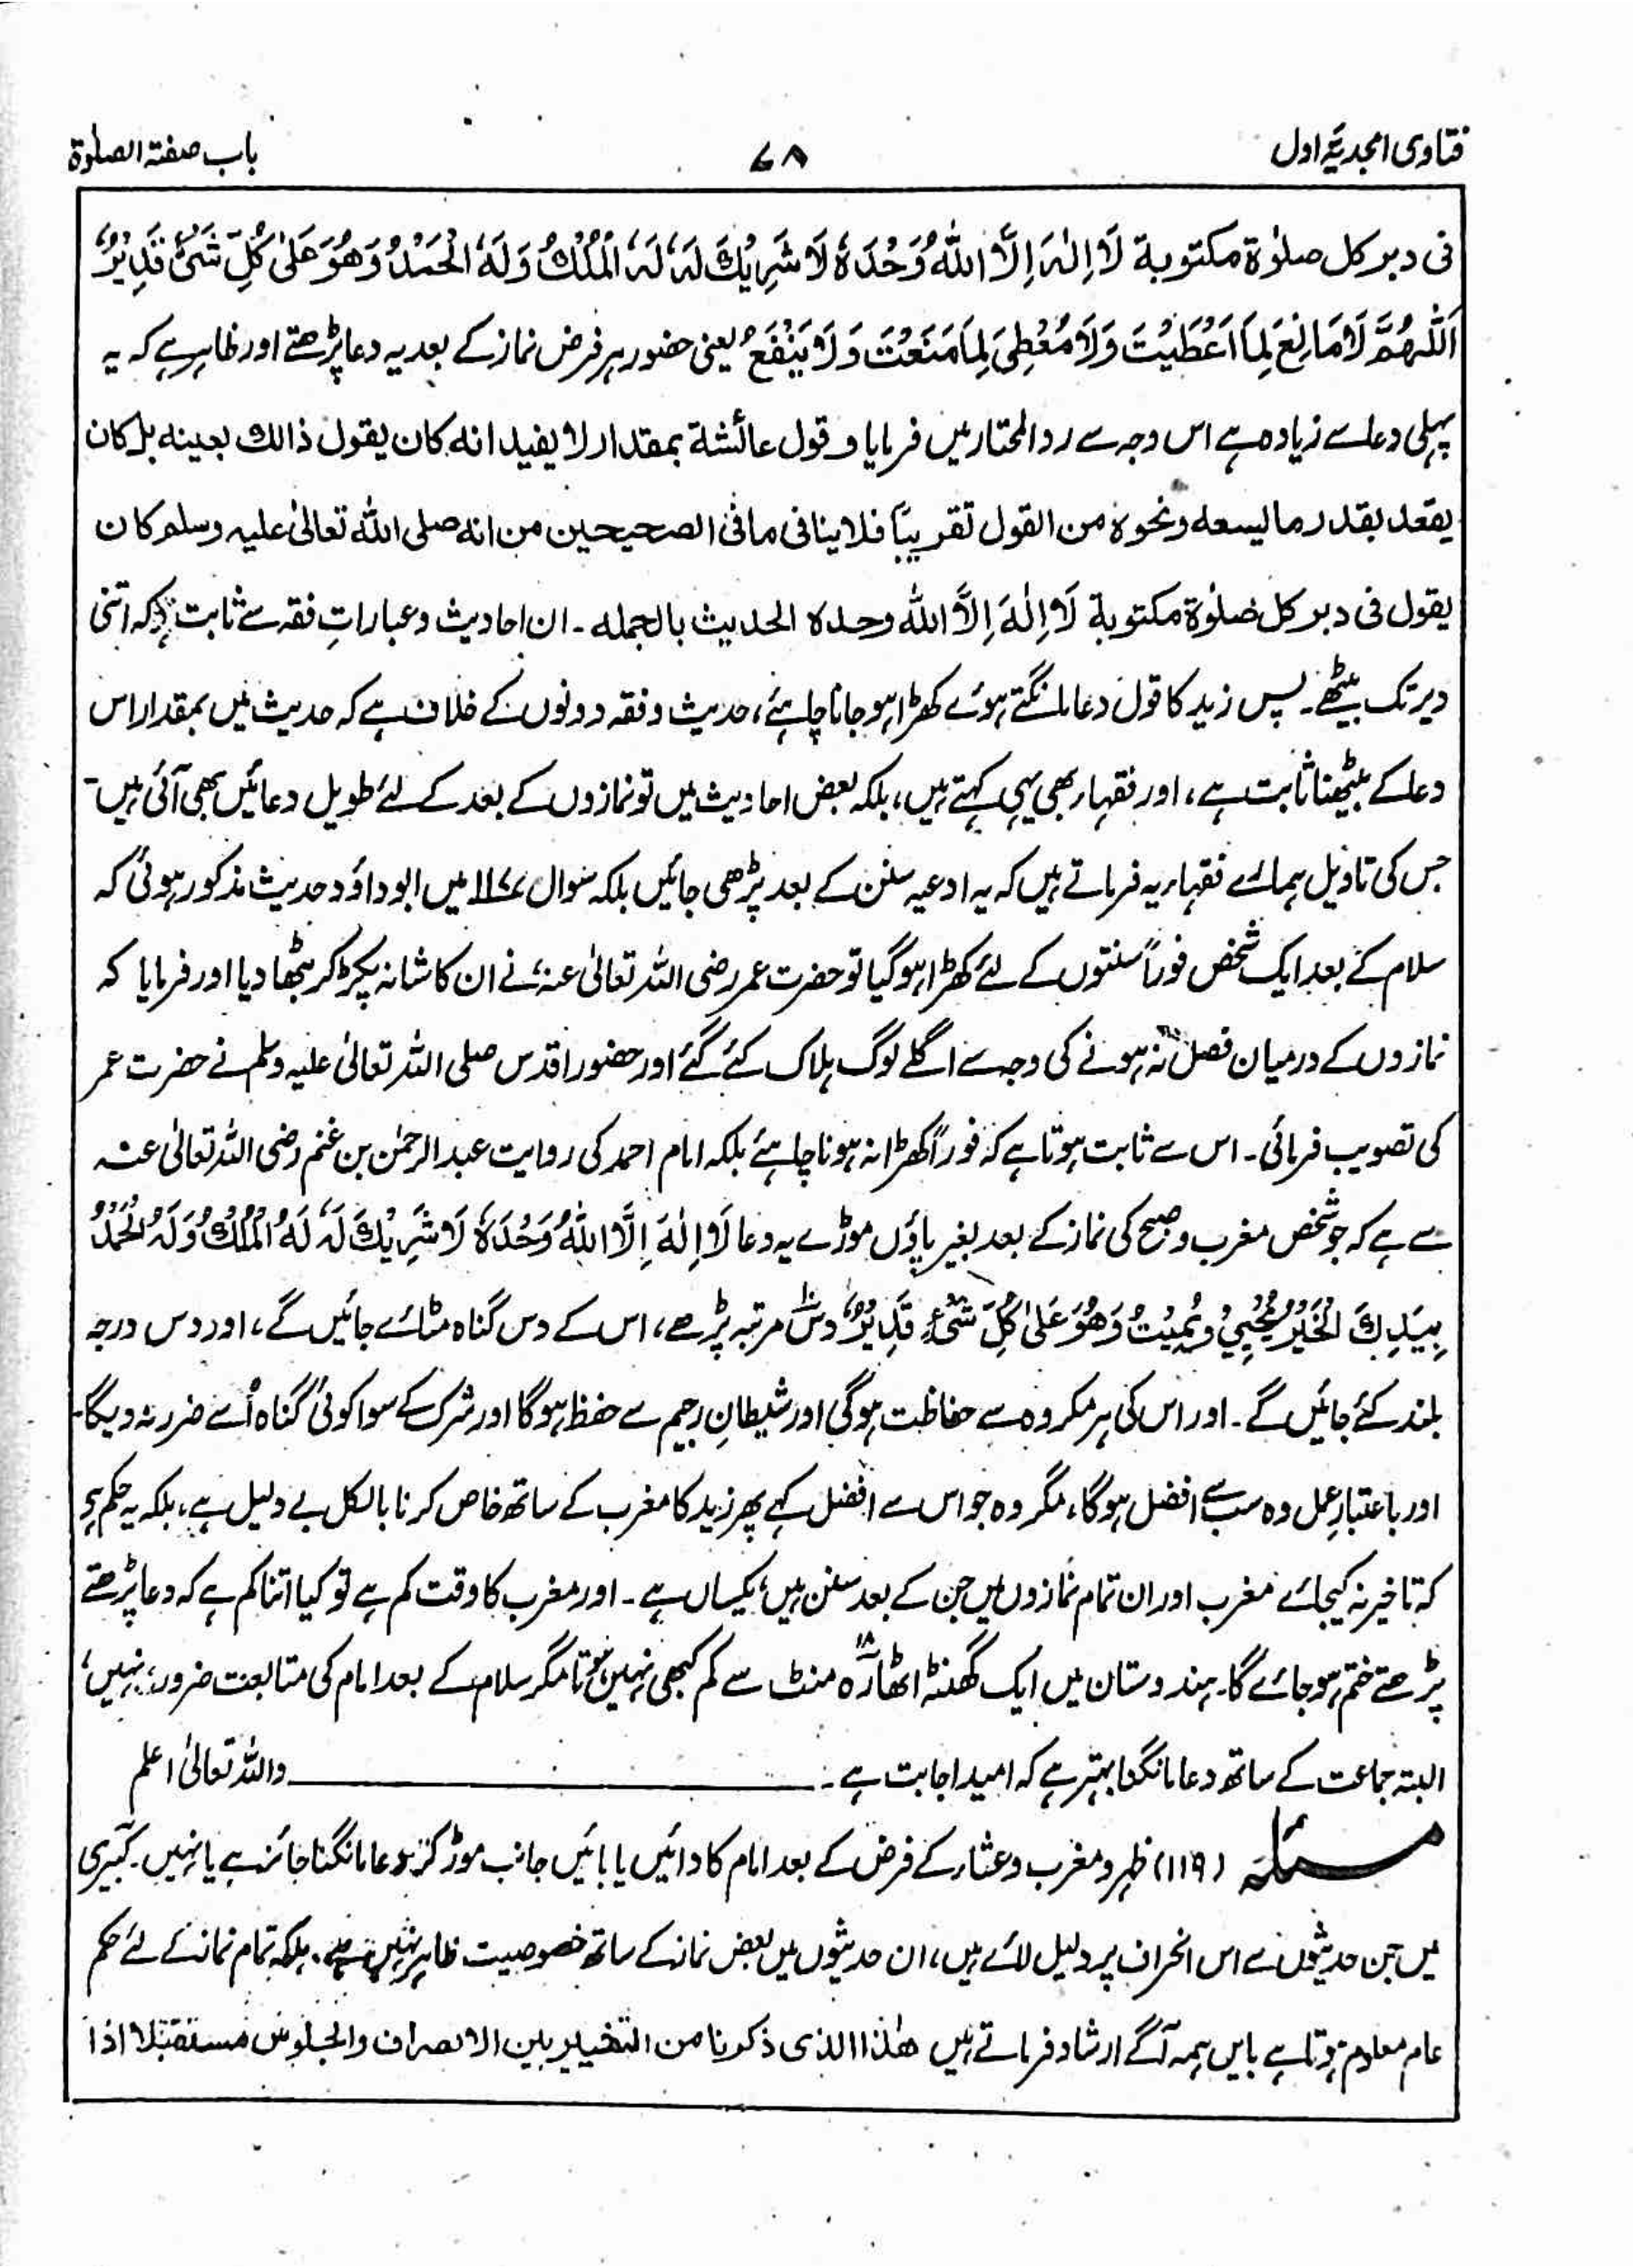 فتاویٰ امجدیہ اول
۷۸
باب صفۃ الصلوٰۃ
فی دبر کل صلوٰۃ مکتوبة لَا اِلٰہَ اِلَّا اللہُ وَحْدَہٗ لَا شَرِیْكَ لَہٗ لَہٗ الْمُلْكُ وَلَہٗ الْحَمْدُ وَھُوَ عَلیٰ کُلِّ شَیْئٍ قَدِیْرٌ
اَللّٰہُمَّ لَا مَانِعَ لِمَا اَعْطَیْتَ وَلَا مُعْطِیَ لِمَا مَنَعْتَ وَلَا یَنْفَعُ یعنی حضور ہر فرض نماز کے بعد یہ دعا پڑھتے اور ظاہر ہے کہ یہ
پہلی دعا سے زیادہ ہے اس وجہ سے رد المحتار میں فرمایا و قول عائشة بمقدار لا یفید انه کان یقول ذالك بعینه بل کان
یقعد بقدر ما لیسعه ونحوہ من القول تقریباً فلا ینافی ما فی الصحیحین من انه صلی اللہ تعالیٰ علیہ وسلم کان
یقول فی دبر کل صلوٰۃ مکتوبة لَا اِلٰہَ اِلَّا اللہ وحدہ الحدیث بالجملہ ۔ ان احادیث وعباراتِ فقہ سے ثابت کہ اتنی
دیر تک بیٹھے۔ پس زید کا قول دعا مانگتے ہوئے کھڑا ہو جانا چاہئے، حدیث وفقہ دونوں کے خلاف ہے کہ حدیث میں بمقدار اس
دعا کے بیٹھنا ثابت ہے، اور فقہاء بھی یہی کہتے ہیں، بلکہ بعض احادیث میں تو نمازوں کے بعد کے لئے طویل دعائیں بھی آئی ہیں۔
جس کی تاویل ہمارے فقہاء یہ فرماتے ہیں کہ یہ ادعیہ سنن کے بعد پڑھی جائیں بلکہ سوال ۱۱۷ میں ابو داؤد حدیث مذکور ہوئی کہ
سلام کے بعد ایک شخص فوراً سنتوں کے لئے کھڑا ہو گیا تو حضرت عمر رضی اللہ تعالیٰ عنہ نے ان کا شانہ پکڑ کر بٹھا دیا اور فرمایا کہ
نمازوں کے درمیان فصل نہ ہونے کی وجہ سے اگلے لوگ ہلاک کئے گئے اور حضور اقدس صلی اللہ تعالیٰ علیہ وسلم نے حضرت عمر
کی تصویب فرمائی۔ اس سے ثابت ہوتا ہے کہ فوراً کھڑا نہ ہونا چاہئے بلکہ امام احمد کی روایت عبد الرحمٰن بن غنم رضی اللہ تعالیٰ عنہ
سے ہے کہ جو شخص مغرب و صبح کی نماز کے بعد بغیر پاؤں موڑے یہ دعا لَا اِلٰہَ اِلَّا اللہُ وَحْدَہٗ لَا شَرِیْكَ لَہٗ لَہُ الْمُلْكُ وَلَہُ الْحَمْدُ
بِیَدِكَ الْخَیْرُ یُحْیِیْ وَیُمِیْتُ وَھُوَ عَلیٰ کُلِّ شَیْءٍ قَدِیْرٌ دس ۱۰ مرتبہ پڑھے، اس کے دس گناہ مٹائے جائیں گے، اور دس درجہ
بلند کئے جائیں گے۔ اور اس کی ہر مکروہ سے حفاظت ہوگی اور شیطانِ رجیم سے حفظ ہوگا اور شرک کے سوا کوئی گناہ اُسے ضرر نہ دیگا۔
اور باعتبارِ عمل وہ سب سے افضل ہوگا، مگر وہ جو اس سے افضل کہے پھر زید کا مغرب کے ساتھ خاص کرنا بالکل بے دلیل ہے، بلکہ یہ حکم ہے
کہ تاخیر نہ کیجائے مغرب اور ان تمام نمازوں میں جن کے بعد سنن ہیں، یکساں ہے۔ اور مغرب کا وقت کم ہے تو کیا اتنا کم ہے کہ دعا پڑھتے
پڑھتے ختم ہو جائے گا۔ ہندوستان میں ایک گھنٹہ اٹھارہ ۱۸ منٹ سے کم کبھی نہیں ہوتا مگر سلام کے بعد امام کی متابعت ضرور نہیں،
البتہ جماعت کے ساتھ دعا مانگنا بہتر ہے کہ امید اجابت ہے۔ واللہ تعالیٰ اعلم
مسئلہ (۱۱۹) ظہر و مغرب و عشاء کے فرض کے بعد امام کا دائیں یا بائیں جانب موڑ کر دعا مانگنا جائز ہے یا نہیں۔ کبیری
میں جن حدیثوں سے اس انحراف پر دلیل لائے ہیں، ان حدیثوں میں بعض نماز کے ساتھ خصوصیت ظاہر نہیں ہے۔ بلکہ تمام نماز کے لئے حکم
عام معلوم ہوتا ہے بایں ہمہ آگے ارشاد فرماتے ہیں ھٰذا الذی ذکرنا من التخییر بین الانصراف والجلوس مستقبلا اذا